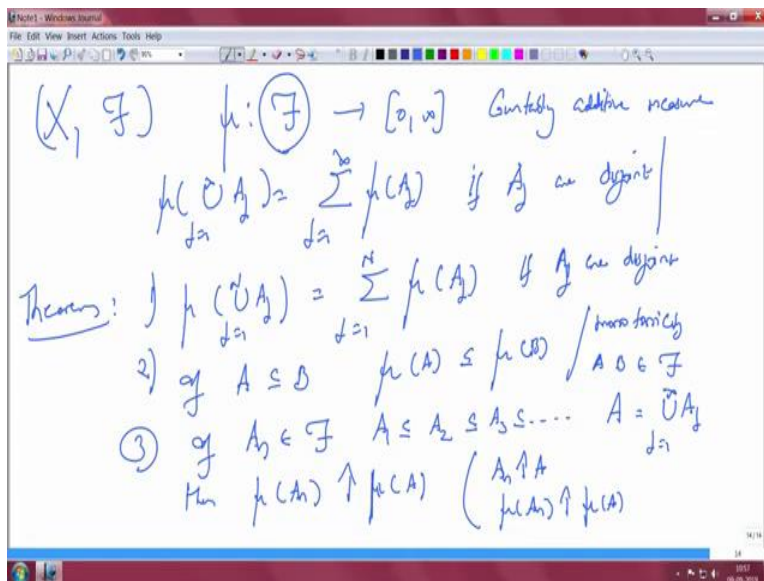 Note1 - Windows Journal
File Edit View Insert Actions Tools Help
(X, ℱ) μ: ℱ → [0, ∞] Countably additive measure
μ(⋃_{j=1}^{∞} A_j) = ∑_{j=1}^{∞} μ(A_j) if A_j are disjoint
Theorem: 1) μ(⋃_{j=1}^{N} A_j) = ∑_{j=1}^{N} μ(A_j) if A_j are disjoint
2) If A ⊆ B μ(A) ≤ μ(B) / monotonicity
A B ∈ ℱ
③ If A_n ∈ ℱ A_1 ⊆ A_2 ⊆ A_3 ⊆ .... A = ⋃_{j=1}^{∞} A_j
then μ(A_n) ↑ μ(A) ( A_n ↑ A
μ(A_n) ↑ μ(A)
14/14
14
10:57